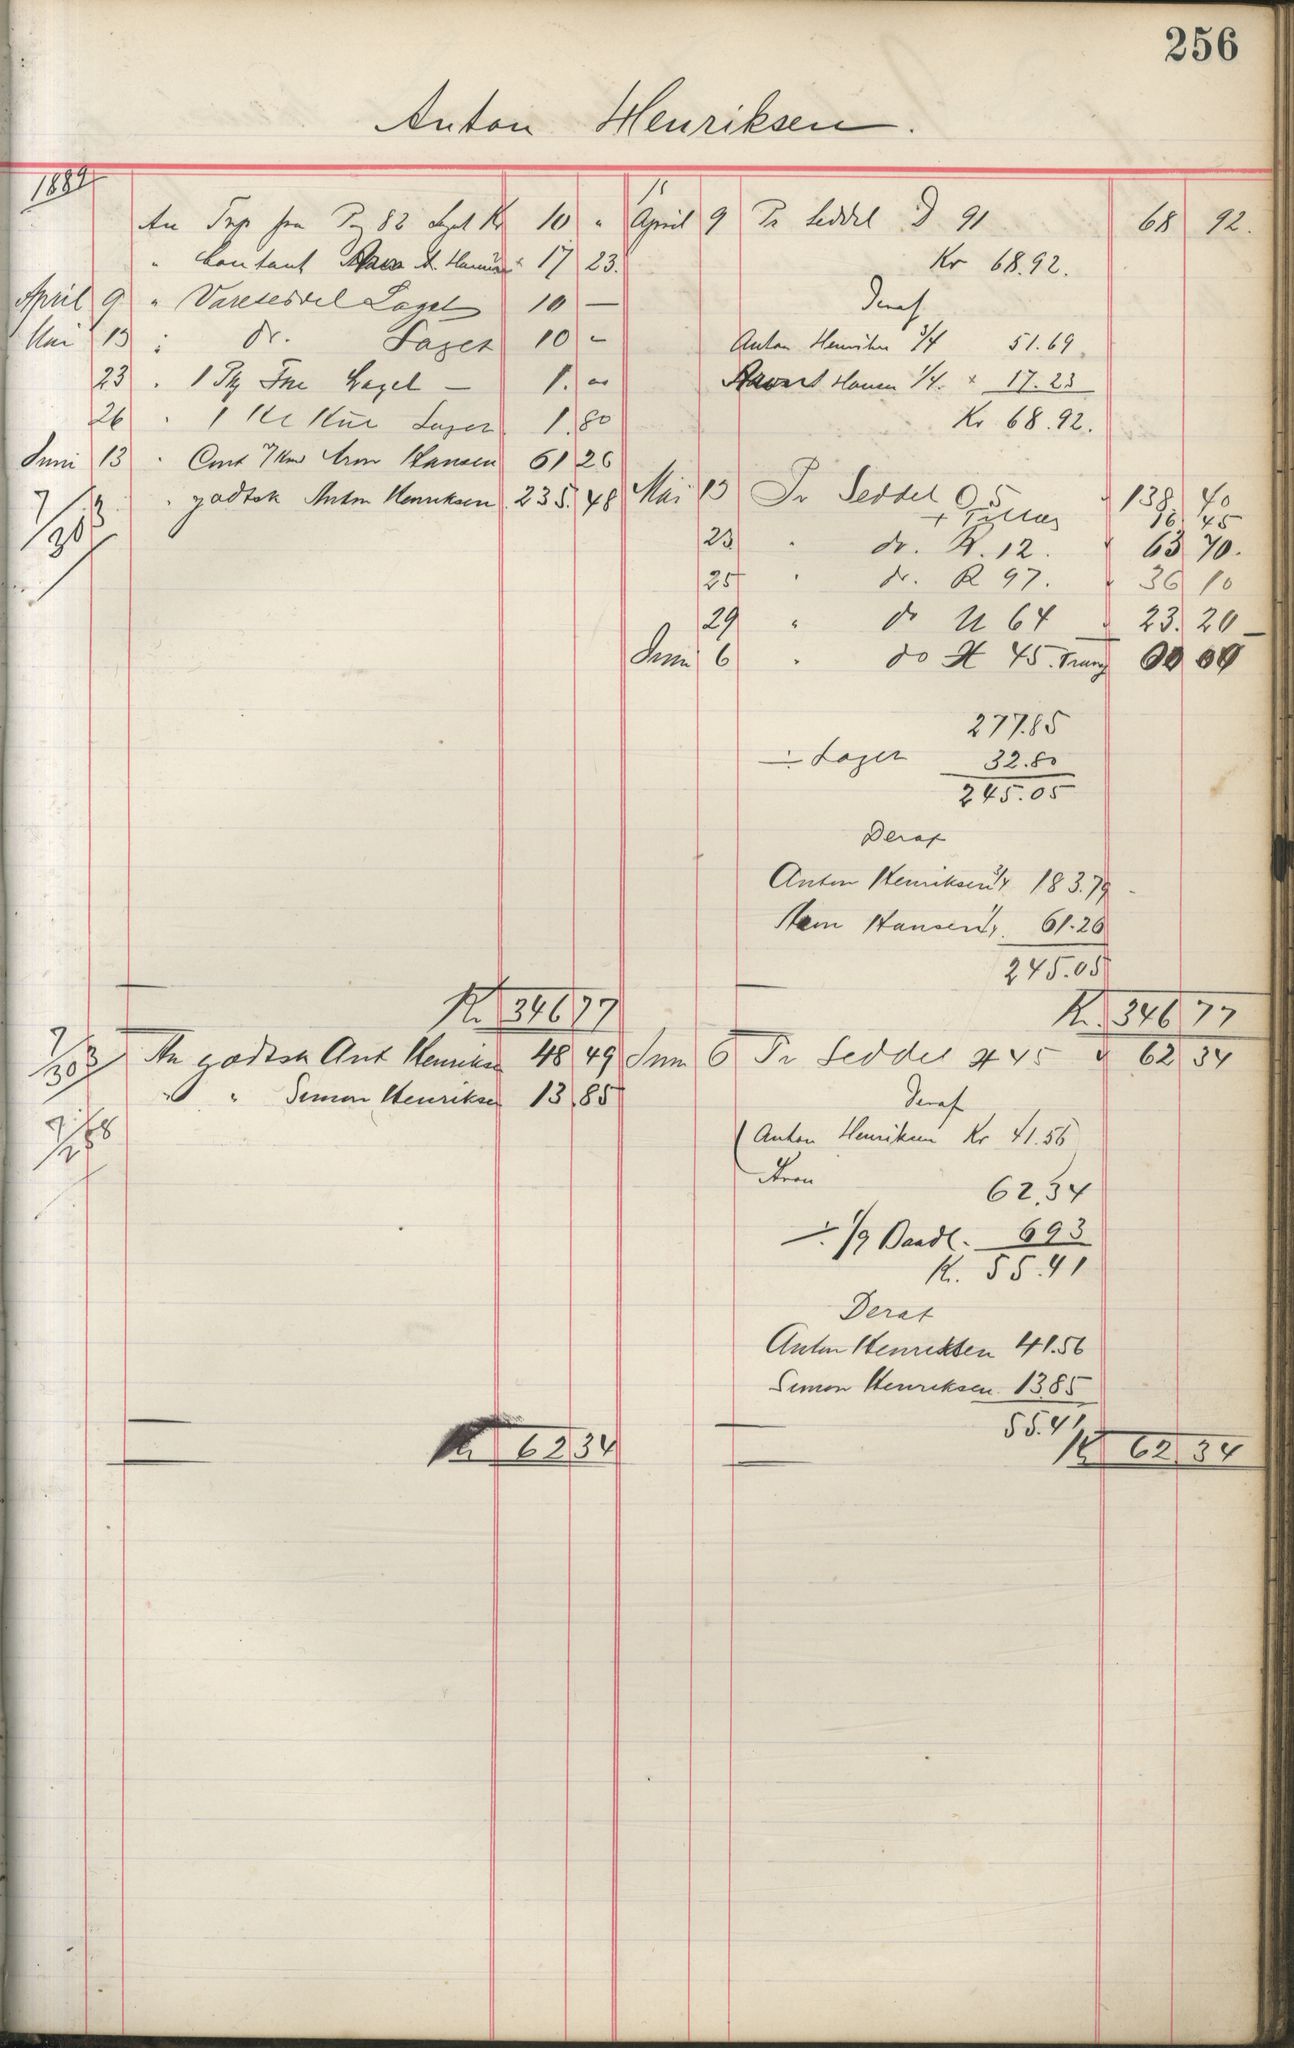 256
Anton Henriksen.
1889
An Trp fra Pag 82 Lagt Kr 10 "
" Contant A. Hansen 17 23.
April 9 " Vareseddel Laget 10 —
Mai 13 " do. Laget 10 -
23 " 1 Lagel — 1. 00
26 " 1 Kl Lager 1.80
Juni 13 " Cont Aron Hansen 61 26
" godtsk Anton Henriksen 235.48
7/30 3
15
April 9 Pr Seddel D 91 68 92.
Kr 68.92.
Deraf
Anton Henriksen 3/4 51.69
Hansen 1/4. " 17.23
Kr 68.92.
Mai 13 Pr Seddel O 5 138. 40
+ Tillæg 16. 45
23 " do. R. 12. 63 70.
25 " do. R 97. 36 10
29 " do U 64 23. 20
Juni 6 " do H 45. 00 00
277.85
÷ Lager 32.80
245.05
Deraf
Anton Henriksen 3/4 183.79
Aron Hansen 1/4. 61.26
245.05
Kr 346 77 Kr. 346 77
7/30 3 An godtsk Ant Henriksen 48 49
" " Simon Henriksen 13.85
7/28 8
Juni 6 Pr Seddel H 45 62 34
Deraf
Anton Henriksen Kr 41.56
Aron
62.34
÷ 1/9 Baadl. 693
Kr. 55.41
Deraf
Anton Henriksen 41.56
Simon Henriksen. 13.85
55.41
Kr 62 34 Kr 62 34